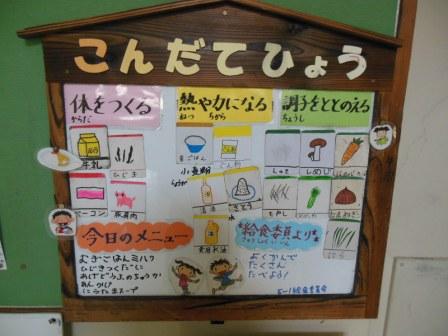 こんだてひょう
体をつくる
からだ
熱や力になる
ねつ ちから
調子をととのえる
ちょうし
牛乳
ひじき
ベーコン
豚肉
麦ごはん
でん粉
小麦粉
さとう
油
米ぬか油
しょうが
しめじ
にんじん
もやし
たまねぎ
にら
今日のメニュー
むぎごはんミルク
ひじきつくだに
あげどうふのちゅうか
あんかけ
にらたまスープ
給食委員より
きゅうしょくいいん
よくかんで
たくさん
たべよう!
5-1給食委員会